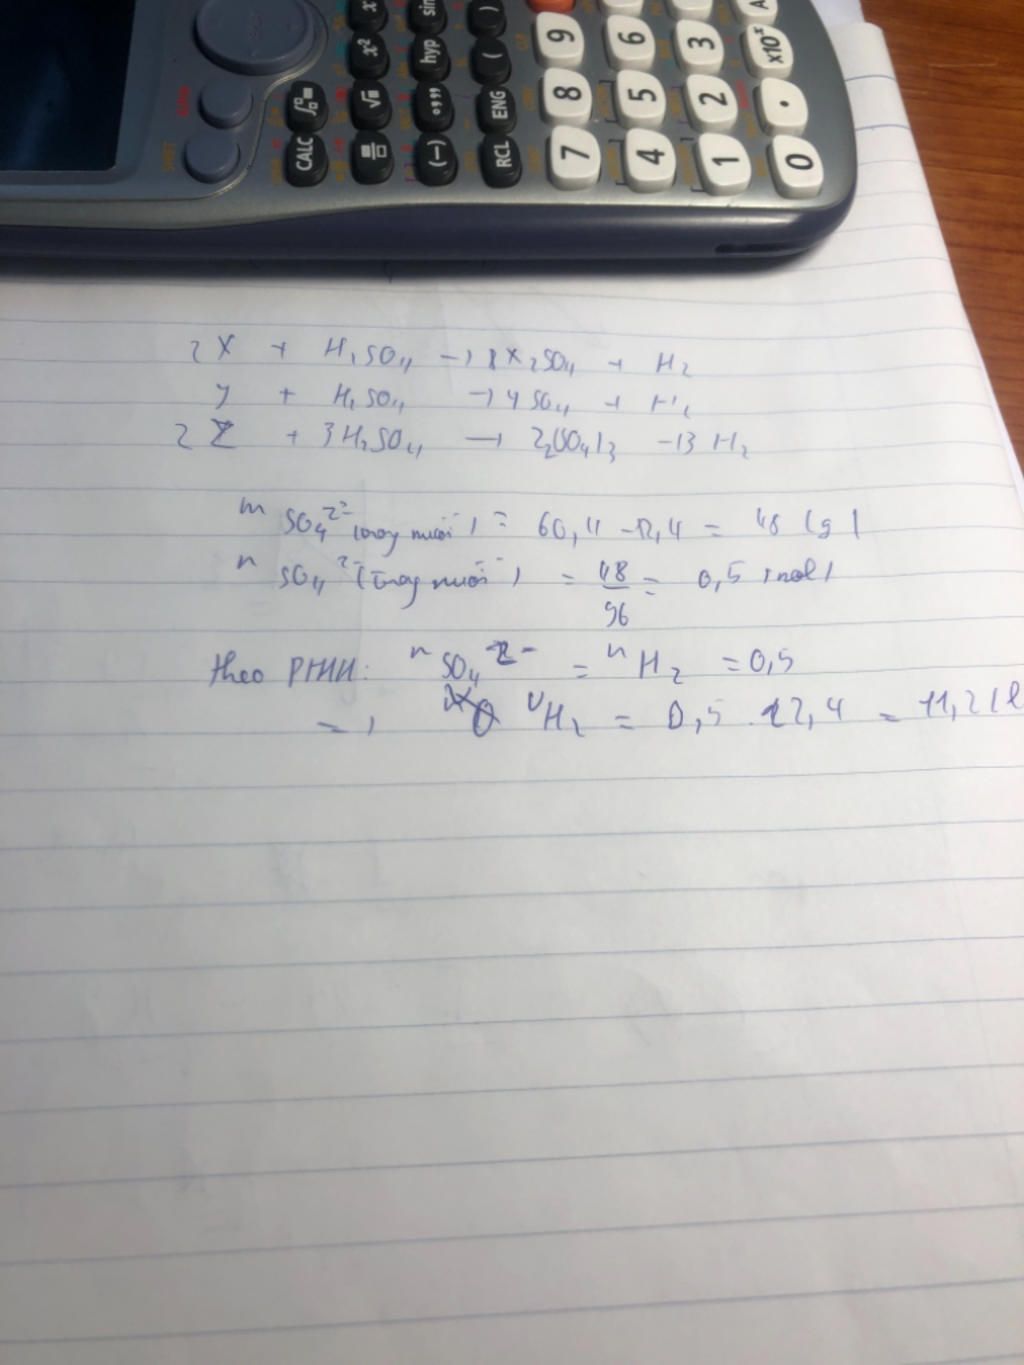 CALC
√
x²
(-)
°,,,
hyp
sin
RCL
ENG
(
)
7 8 9
4 5 6
1 2 3
0 . ×10ˣ A
2X + H₂SO₄ → X₂SO₄ + H₂
y + H₂SO₄ → ySO₄ + H₂
2Z + 3H₂SO₄ → Z₂(SO₄)₃ + 3H₂
m SO₄²⁻ (trong muối) = 60,4 - 12,4 = 48 (g)
n SO₄²⁻ (trong muối) = 48/96 = 0,5 (mol)
theo PTHH: n SO₄²⁻ = n H₂ = 0,5
=) V H₂ = 0,5 . 22,4 = 11,2 (l